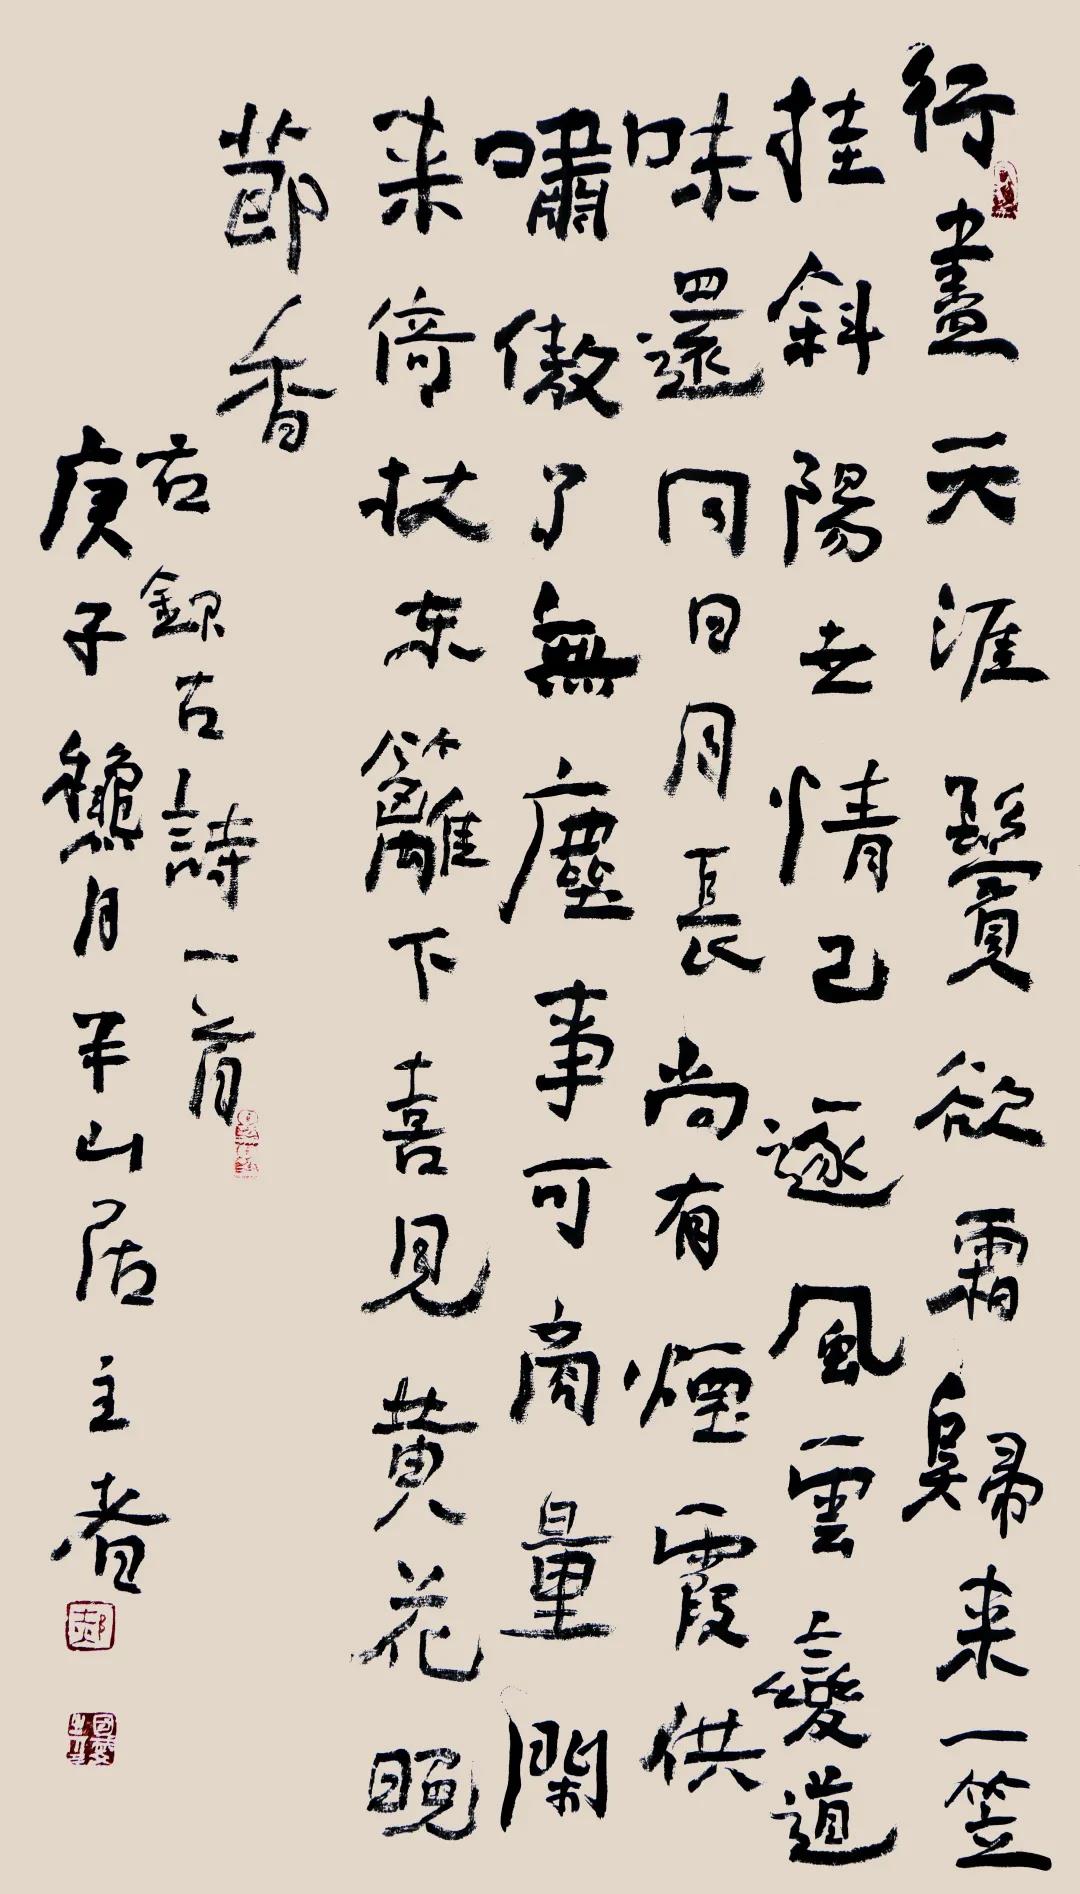 行盡天涯鬢欲霜歸来一笠
挂斜陽世情已逐風雲變道
味還同日月長尚有煙霞供
嘯傲了無塵事可商量閑
来倚杖东籬下喜見黄花晚
節香
右録古詩一首
庚子龝月半山居主者